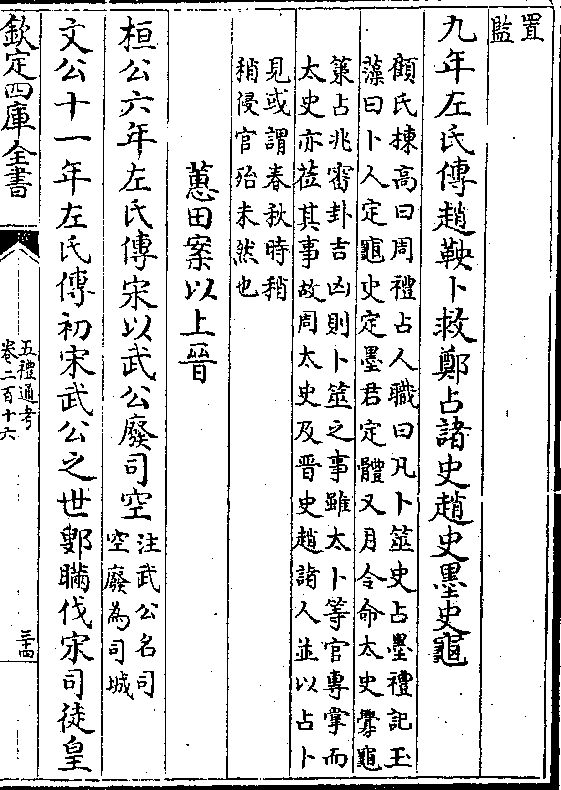 置
監
九年左氏傳趙鞅卜救鄭占諸史趙史墨史龜
顧氏棟高曰周禮占人職曰凡卜筮史占墨禮記玉
藻曰卜人定龜史定墨君定體又月令命太史釁龜
筴占兆審卦吉凶則卜筮之事雖太卜等官專掌而
太史亦莅其事故周太史及晉史趙諸人並以占卜
見或謂春秋時稍
稍侵官殆未然也
蕙田案以上晉
桓公六年左氏傳宋以武公廢司空
注武公名司
空廢為司城
文公十一年左氏傳初宋武公之世鄋瞞伐宋司徒皇
欽定四庫全書
五禮通考
卷二百十六
三十四